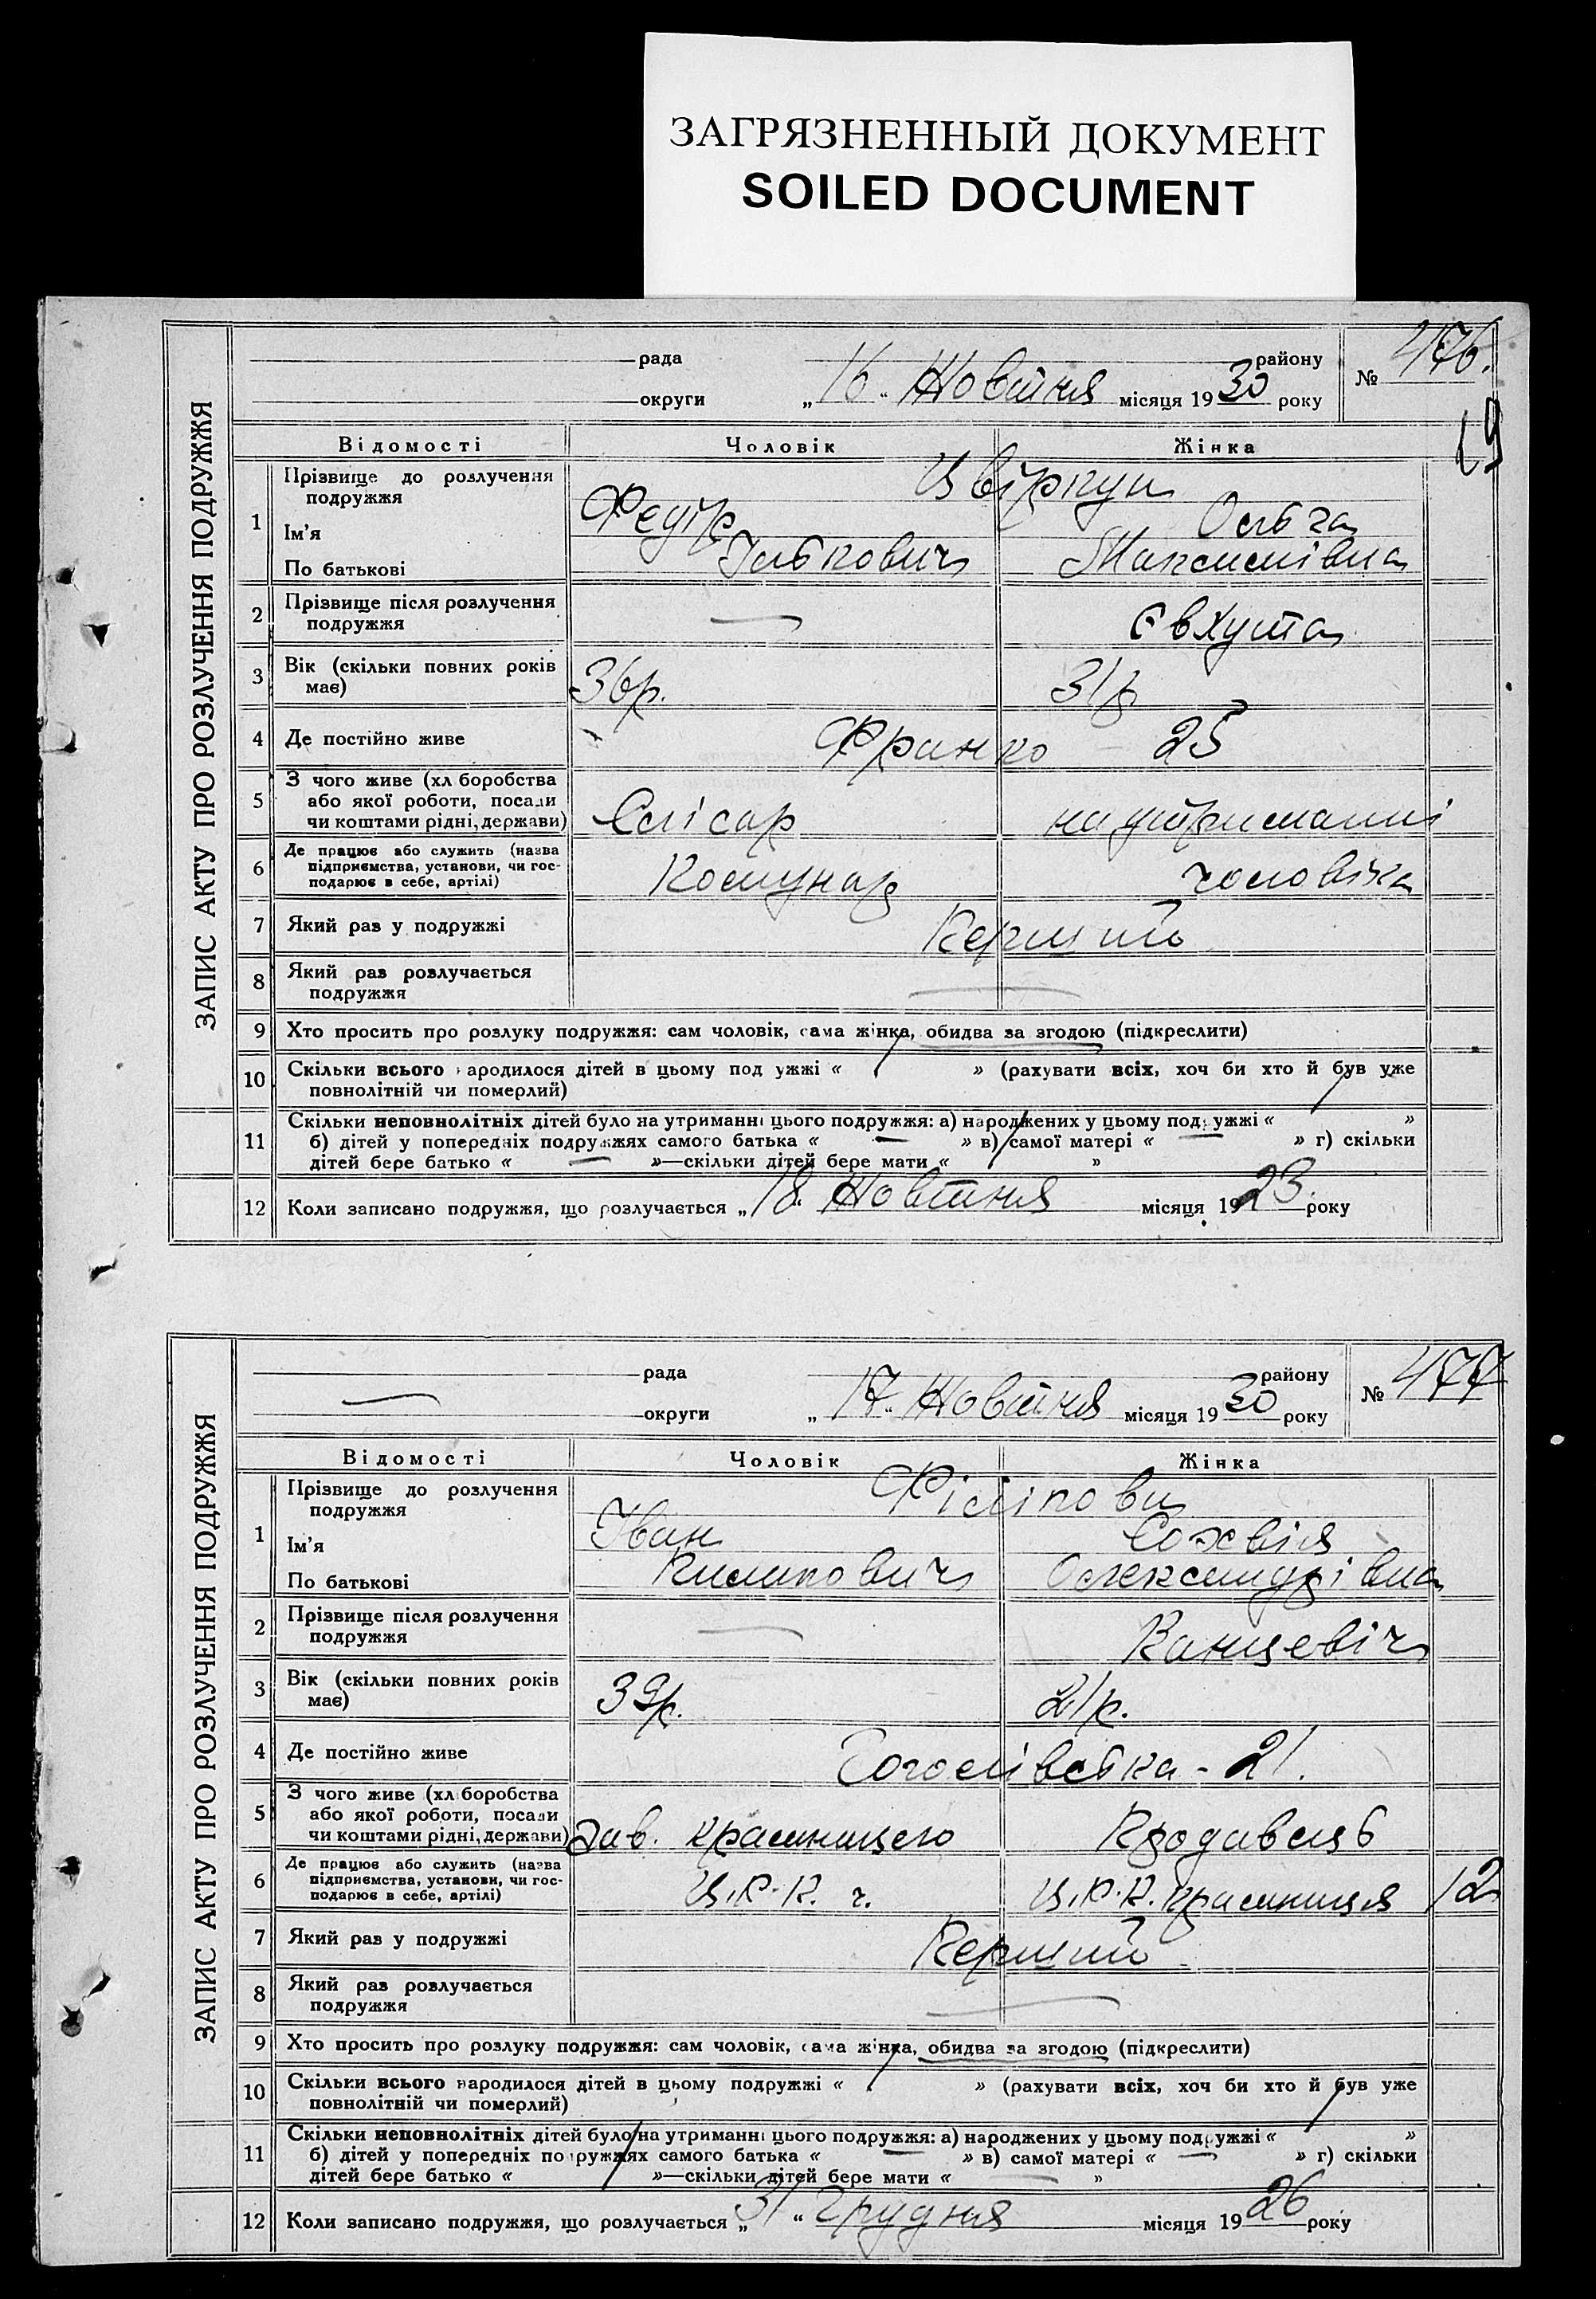 ЗАГРЯЗНЕННЫЙ ДОКУМЕНТ
SOILED DOCUMENT
ЗАПИС АКТУ ПРО РОЗЛУЧЕННЯ ПОДРУЖЖЯ
рада району
округи „16“ Жовтня місяця 1930 року
№ 476.
19
Відомості Чоловік Жінка
1 Прізвище до розлучення подружжя Цвіркун
Ім'я Федір Ольга
По батькові Юлькович Максимівна
2 Прізвище після розлучення — Євхута
подружжя
3 Вік (скільки повних років 36р. 31р
має)
4 Де постійно живе Франко 25
5 З чого живе (хл боробства
або якої роботи, посади
чи коштами рідні, держави) Слісар на утриманні
6 Де працює або служить (назва
підприємства, установи, чи гос-
подарює в себе, артілі) Комунар чоловіка
7 Який раз у подружжі Перший
8 Який раз розлучається —
подружжя
9 Хто просить про розлуку подружжя: сам чоловік, сама жінка, обидва за згодою (підкреслити)
10 Скільки всього народилося дітей в цьому под ужжі « » (рахувати всіх, хоч би хто й був уже
повнолітній чи померлий)
11 Скільки неповнолітніх дітей було на утриманні цього подружжя: а) народжених у цьому подружжі « »
б) дітей у попередніх подружжях самого батька « — » в) самої матері « — » г) скільки
дітей бере батько « — »—скільки дітей бере мати « »
12 Коли записано подружжя, що розлучається „18“ Жовтня місяця 1923 року
ЗАПИС АКТУ ПРО РОЗЛУЧЕННЯ ПОДРУЖЖЯ
рада району
— округи „17“ Жовтня місяця 1930 року
№ 477
Відомості Чоловік Жінка
1 Прізвище до розлучення Філіпови
подружжя
Ім'я Іван Софвія
По батькові Пилипович Олександрівна
2 Прізвище після розлучення — Канцевіч
подружжя
3 Вік (скільки повних років 39р. 21р.
має)
4 Де постійно живе Гоголівська - 21.
5 З чого живе (хл боробства
або якої роботи, посади
чи коштами рідні, держави) Зав. крамницею Продавець
6 Де працює або служить (назва
підприємства, установи, чи гос-
подарює в себе, артілі) Ц.Р.К. Ц.Р.К. крамниця 12
7 Який раз у подружжі Перший
8 Який раз розлучається —
подружжя
9 Хто просить про розлуку подружжя: сам чоловік, сама жінка, обидва за згодою (підкреслити)
10 Скільки всього народилося дітей в цьому подружжі « » (рахувати всіх, хоч би хто й був уже
повнолітній чи померлий)
11 Скільки неповнолітніх дітей було на утриманні цього подружжя: а) народжених у цьому подружжі « »
б) дітей у попередніх подружжях самого батька « — » в) самої матері « — » г) скільки
дітей бере батько « »—скільки дітей бере мати « — »
12 Коли записано подружжя, що розлучається „31“ Грудня місяця 1926 року